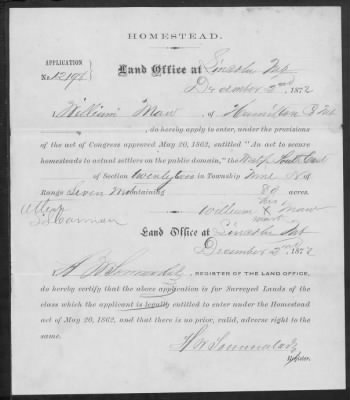 HOMESTEAD.
APPLICATION
Land Office at Lincoln Neb
No. 12198
December 2nd 1872
I William Maw of Hamilton Neb
, do hereby apply to enter, under the provisions
of the act of Congress approved May 20, 1862, entitled "An act to secure
homesteads to actual settlers on the public domain," the West ½ South East
of Section twenty two in Township Nine N of
Range Seven W containing 80 acres.
Attest
his
William X Maw
mark
Land Office at Lincoln Neb
December 2nd 1872
I, REGISTER OF THE LAND OFFICE,
do hereby certify that the above application is for Surveyed Lands of the
class which the applicant is legally entitled to enter under the Homestead
act of May 20, 1862, and that there is no prior, valid, adverse right to the
same.
Register.